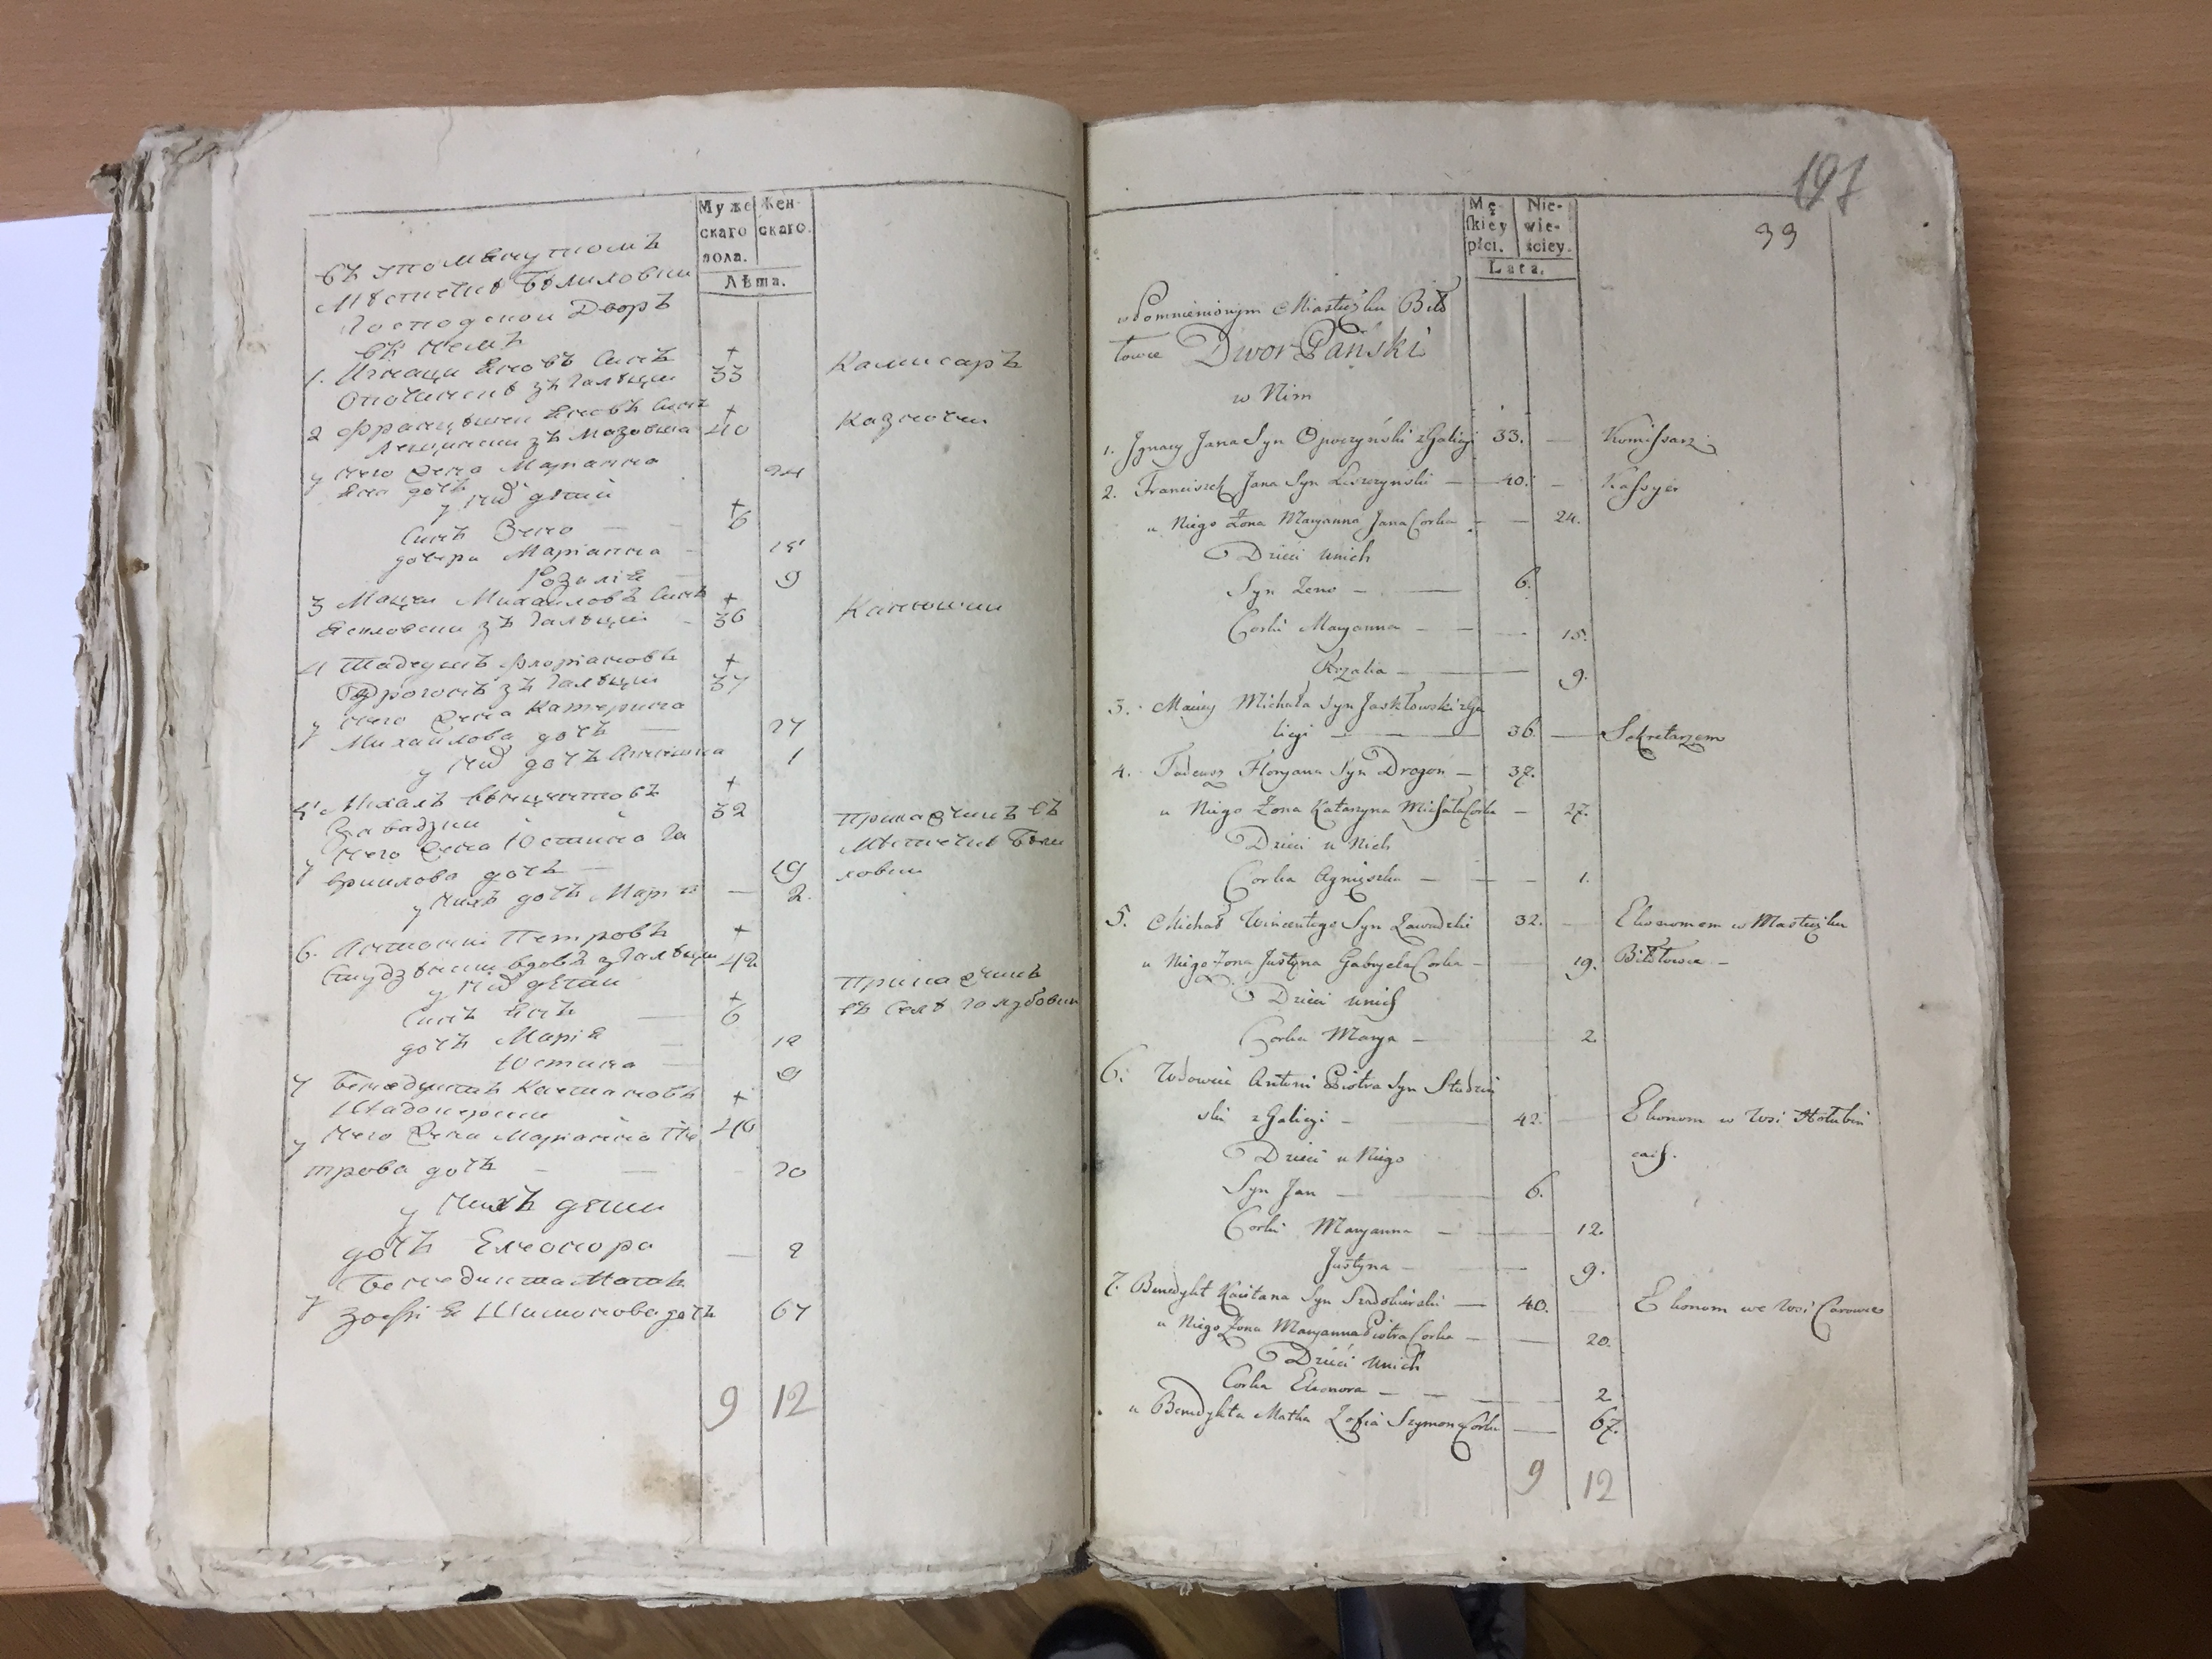 Муже Жен-
скаго скаго.
пола.
Лѣта.
въ упомянутомъ
Мѣстечкѣ Бѣлиловки
Господской Дворъ
въ немъ
1. Игнаци Яновъ Синъ 33 Комисаръ
Опочински зъ Галѣции
2 Францышек Яновъ Синъ 40 Казночи
Лещински зъ Мазовша
у него жена Марианна 24
Яна дочь
у них дѣтей
Синъ Зено — — 6
дочери Маріанна — 15
Розаліа — 9
3 Мацеи Михаловъ Синъ Канюши
Ясковски зъ Галѣции — 36
4 Тадеушъ Флоріановъ
Дрогонь зъ Галѣции 37
у него жена Катерина
Михаилова дочь — 27
у них дочь Агнишка 1
5 Михалъ Вѣнцентовъ 32
Завадзки прикащикъ въ
у него жена Юстина Га Мѣстечкѣ Бѣли
вриилова дочь — 19 ловки
у нихъ дочь Марія — 2.
6. Антони Петровъ
Студзѣнски вдовъ з Галѣции 42
у них дѣтей прикащикъ
Синъ Янъ — 6 въ Селѣ Голубовки
дочь Марія — 12
Юстина — 9
7 Бенедиктъ Каетановъ
Шадокерски 40
у него жена Маріанна Пе
трова дочь — — 20
у нихъ дѣти
дочь Елеонора — 2
у Бенедикта Мать
Зофія Шимонова дочь 67
9 12
197
39
Mę- Nie-
skiey wie-
płci. sciey.
Lata.
wspomnienionym Miasteczku Biło
łowce Dwor Pański
w Nim
1. Jgnacy Jana Syn Opoczyński z Galicyi 33. — Komissarz
2. Franciszek Jana Syn Leszczyński — 40. — Kassyer
u Niego Żona Maryanna Jana Corka — — 24.
Dzieci u nich
Syn Zeno — — 6.
Corki Maryanna — — 15.
Rozalia — — 9.
3. Maciey Michała Syn Jaskłowski z Ga
licyi — — 36. — Sekretarzem
4. Tadeusz Floryana Syn Drogon — 37.
u Niego Żona Katarzyna Michała Corka — 27.
Dzieci u Nich
Corka Agnieszka — — 1.
5. Michał Wincentego Syn Zawadzki 32. — Ekonomem w Miasteczku
u Niego Żona Justyna Gabryela Corka — 19. Biłołowce —
Dzieci u nich
Corka Marya — 2
6. Wdowiec Antoni Piotra Syn Studziń
ski z Galicyi — 42. Ekonom w Wsi Hołubin
Dzieci u Niego cach.
Syn Jan — 6.
Corki Maryanna — 12.
Justyna — 9.
7. Benedykt Kaietana Syn Szadokierski — 40. Ekonom we Wsi Carowce
u Niego Żona Maryanna Piotra Corka — 20.
Dzieci u nich
Corka Eleonora — — 2
u Benedykta Matka Zofia Szymona Corka — 67.
9 12